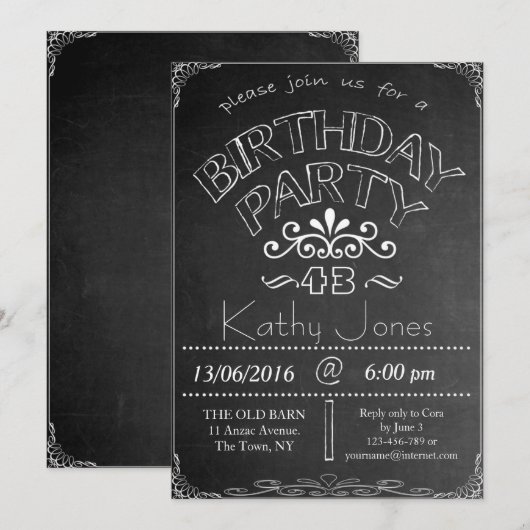 please join us for a
BIRTHDAY
PARTY
43
Kathy Jones
13/06/2016 @ 6:00 pm
THE OLD BARN
11 Anzac Avenue.
The Town, NY
Reply only to Cora
by June 3
123-456-789 or
yourname@internet.com